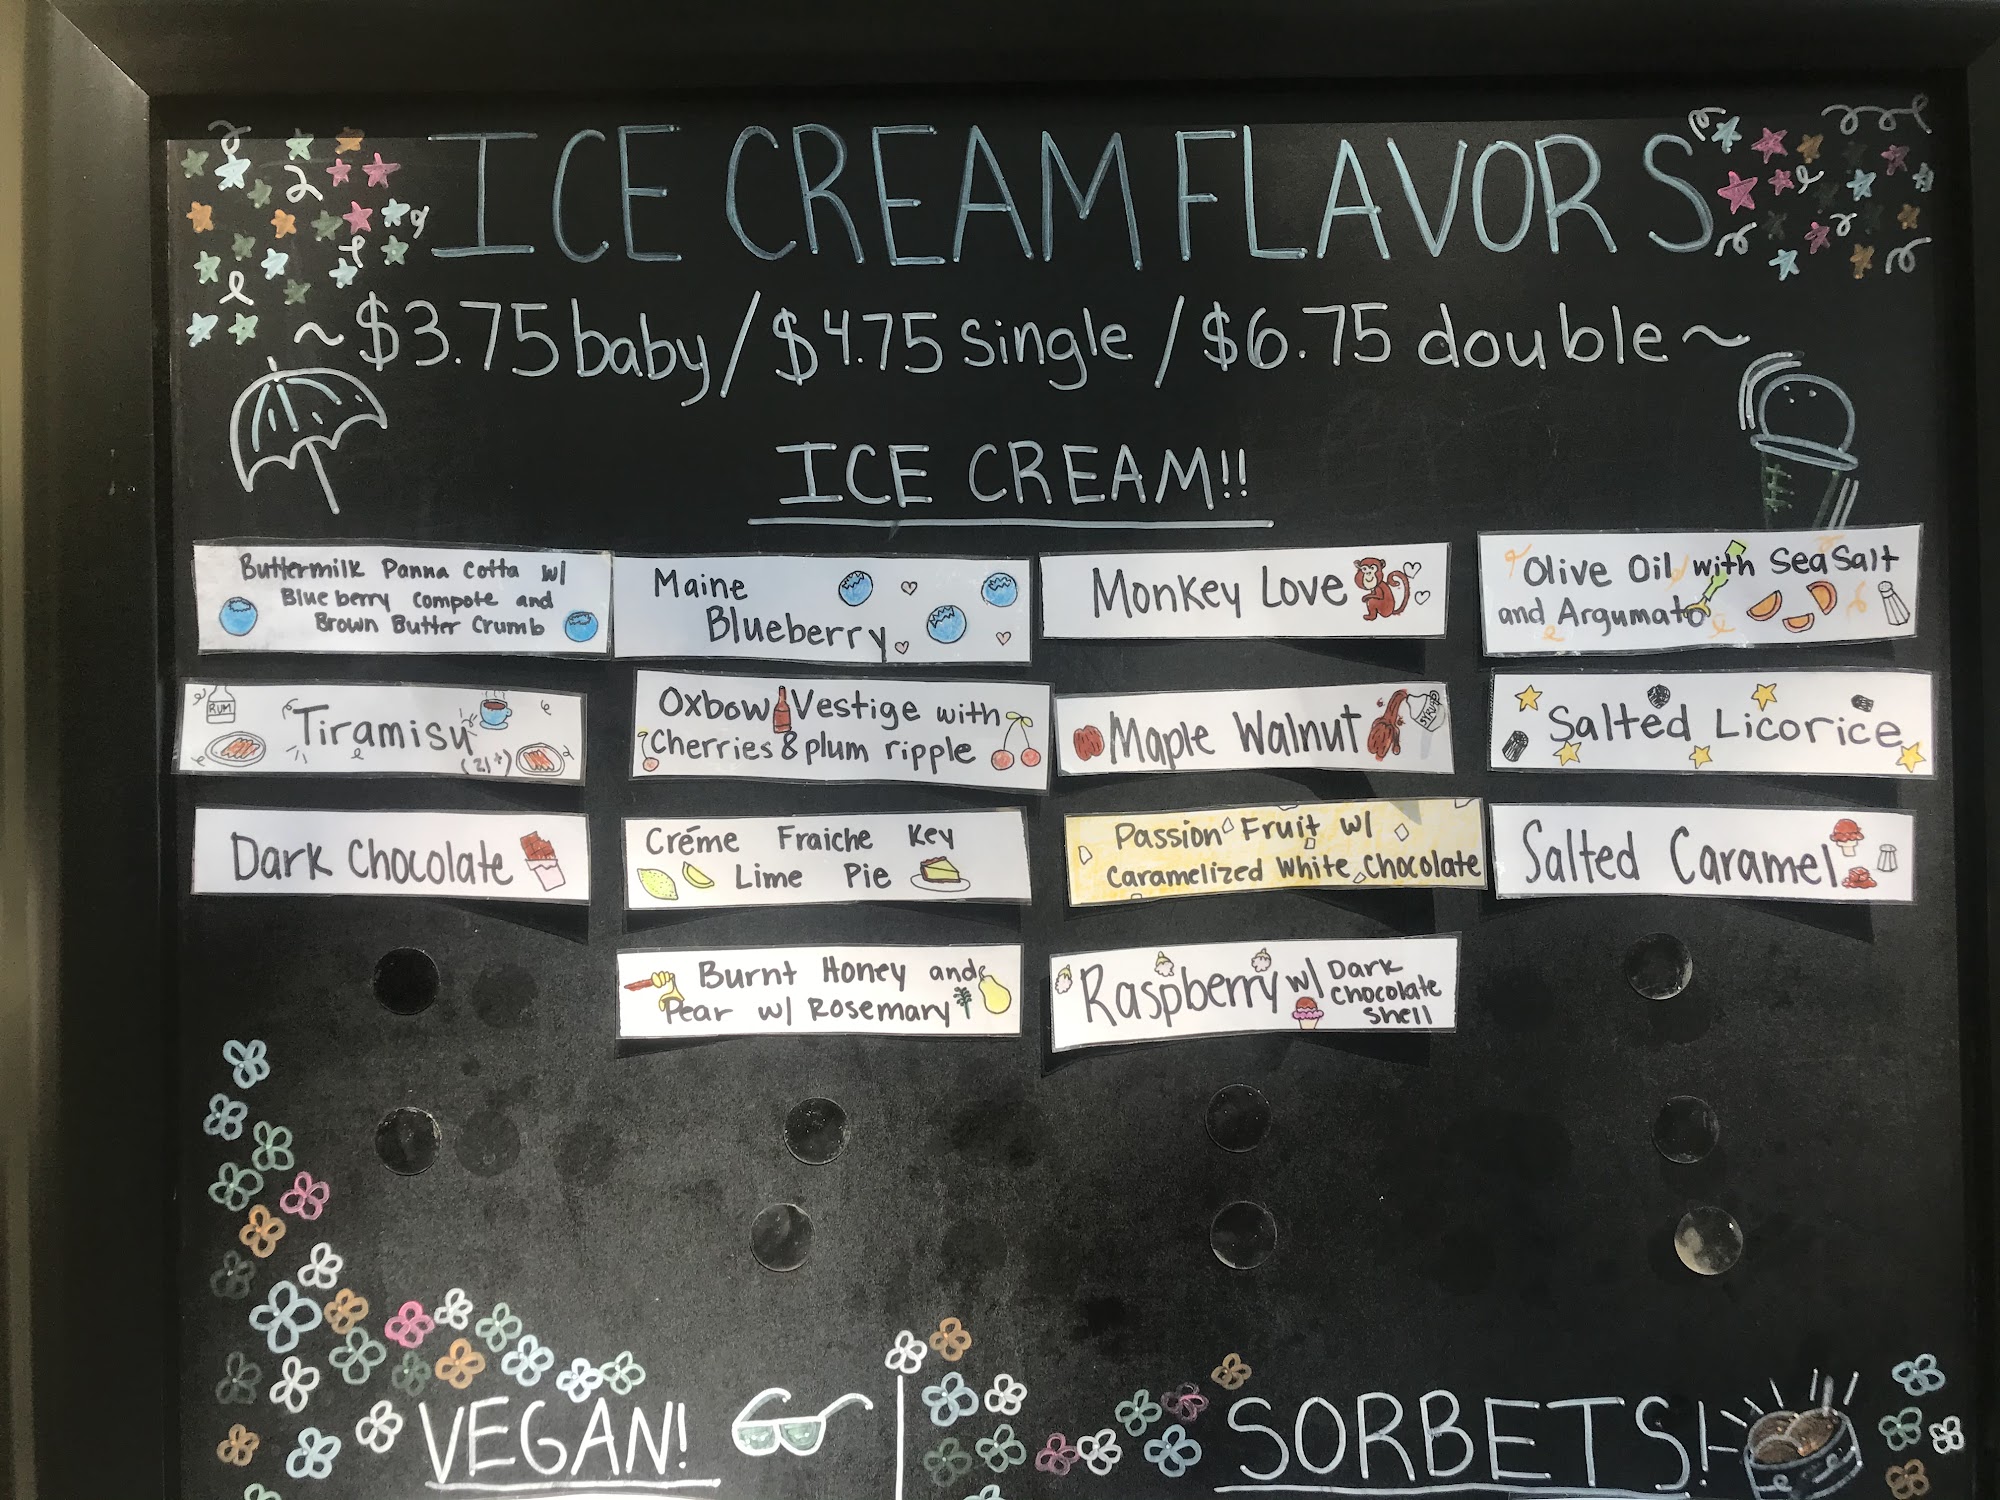 ICE CREAM FLAVORS
~ $3.75 baby / $4.75 single / $6.75 double ~
ICE CREAM!!
Buttermilk Panna Cotta w/
Blueberry Compote and
Brown Butter Crumb
Maine
Blueberry
Monkey Love
Olive Oil with Sea Salt
and Argumato
RUM
Tiramisu
(21+)
Oxbow Vestige with
Cherries & plum ripple
Maple Walnut
SYRUP
Salted Licorice
Dark Chocolate
Créme Fraiche Key
Lime Pie
Passion Fruit w/
Caramelized White Chocolate
Salted Caramel
Burnt Honey and
Pear w/ Rosemary
Raspberry w/ Dark
Chocolate
Shell
VEGAN!
SORBETS!